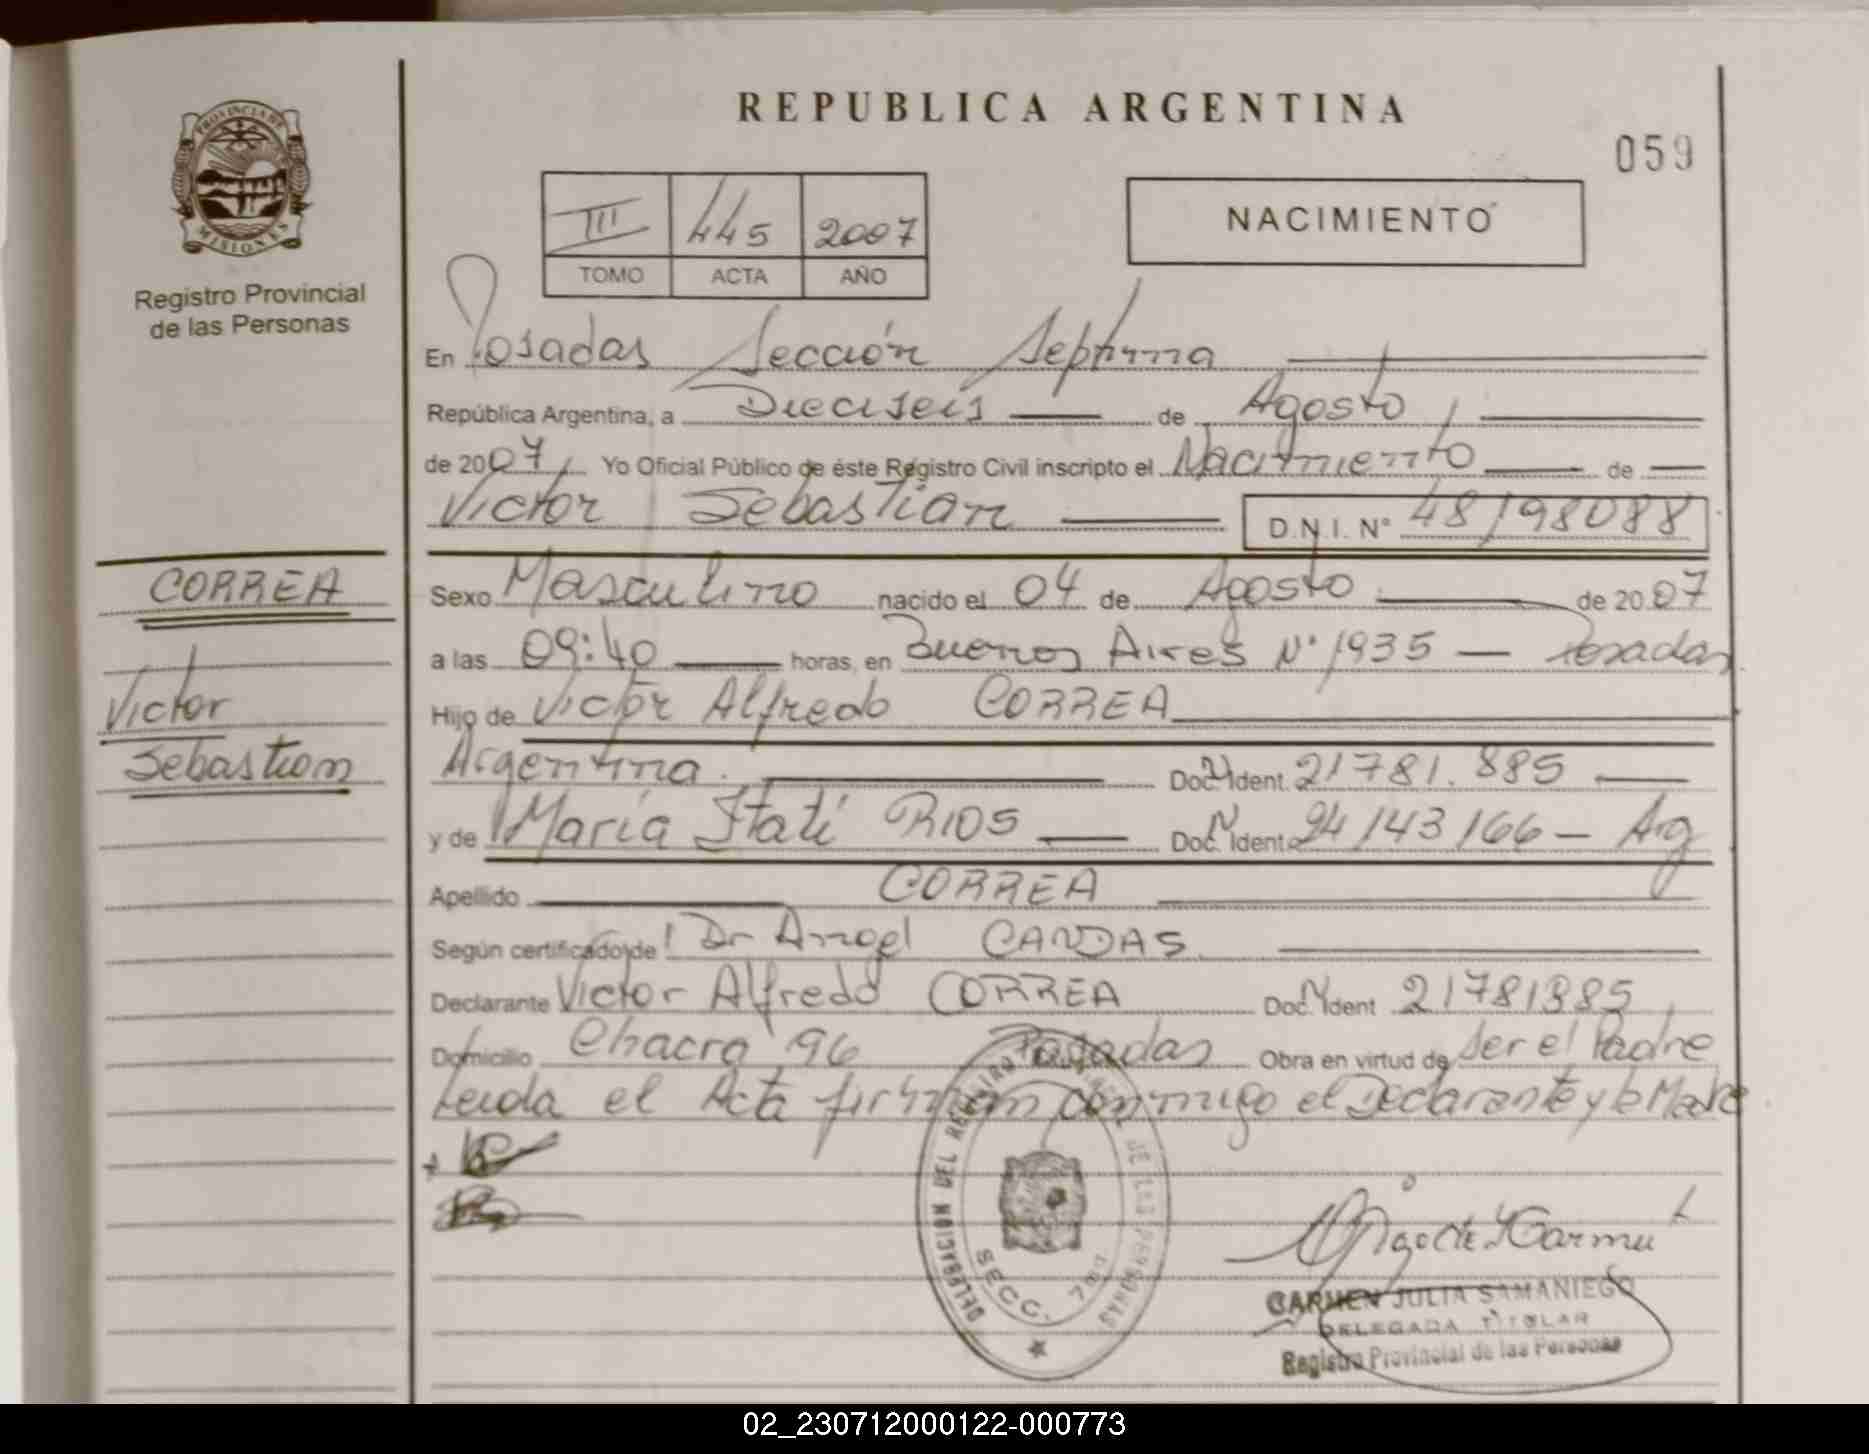 REPUBLICA ARGENTINA
059
PROVINCIA DE MISIONES
Registro Provincial
de las Personas
III 445 2007
TOMO ACTA AÑO
NACIMIENTO
En Posadas Sección Septima
República Argentina, a Dieciseis de Agosto
de 2007 Yo Oficial Público de éste Registro Civil inscripto el Nacimiento de
Victor Sebastian D.N.I. N° 48198088
CORREA
Victor
Sebastian
Sexo Masculino nacido el 04 de Agosto de 2007
a las 09:40 horas, en Buenos Aires N° 1935 — Posadas
Hijo de Victor Alfredo CORREA
Argentina. Doc. Ident. 21781.885
y de María Itatí RIOS Doc. Ident. 24143166 — Arg
Apellido CORREA
Según certificado de Dr Angel CANDAS
Declarante Victor Alfredo CORREA Doc. Ident 21781885
Domicilio Chacra 96 Posadas Obra en virtud de ser el Padre
Leida el Acta firman conmigo el Declarante y la Madre
DELEGACION DEL REGISTRO PROVINCIAL DE LAS PERSONAS
SECC. 7ma
CARMEN JULIA SAMANIEGO
DELEGADA TITULAR
Registro Provincial de las Personas
02_230712000122-000773